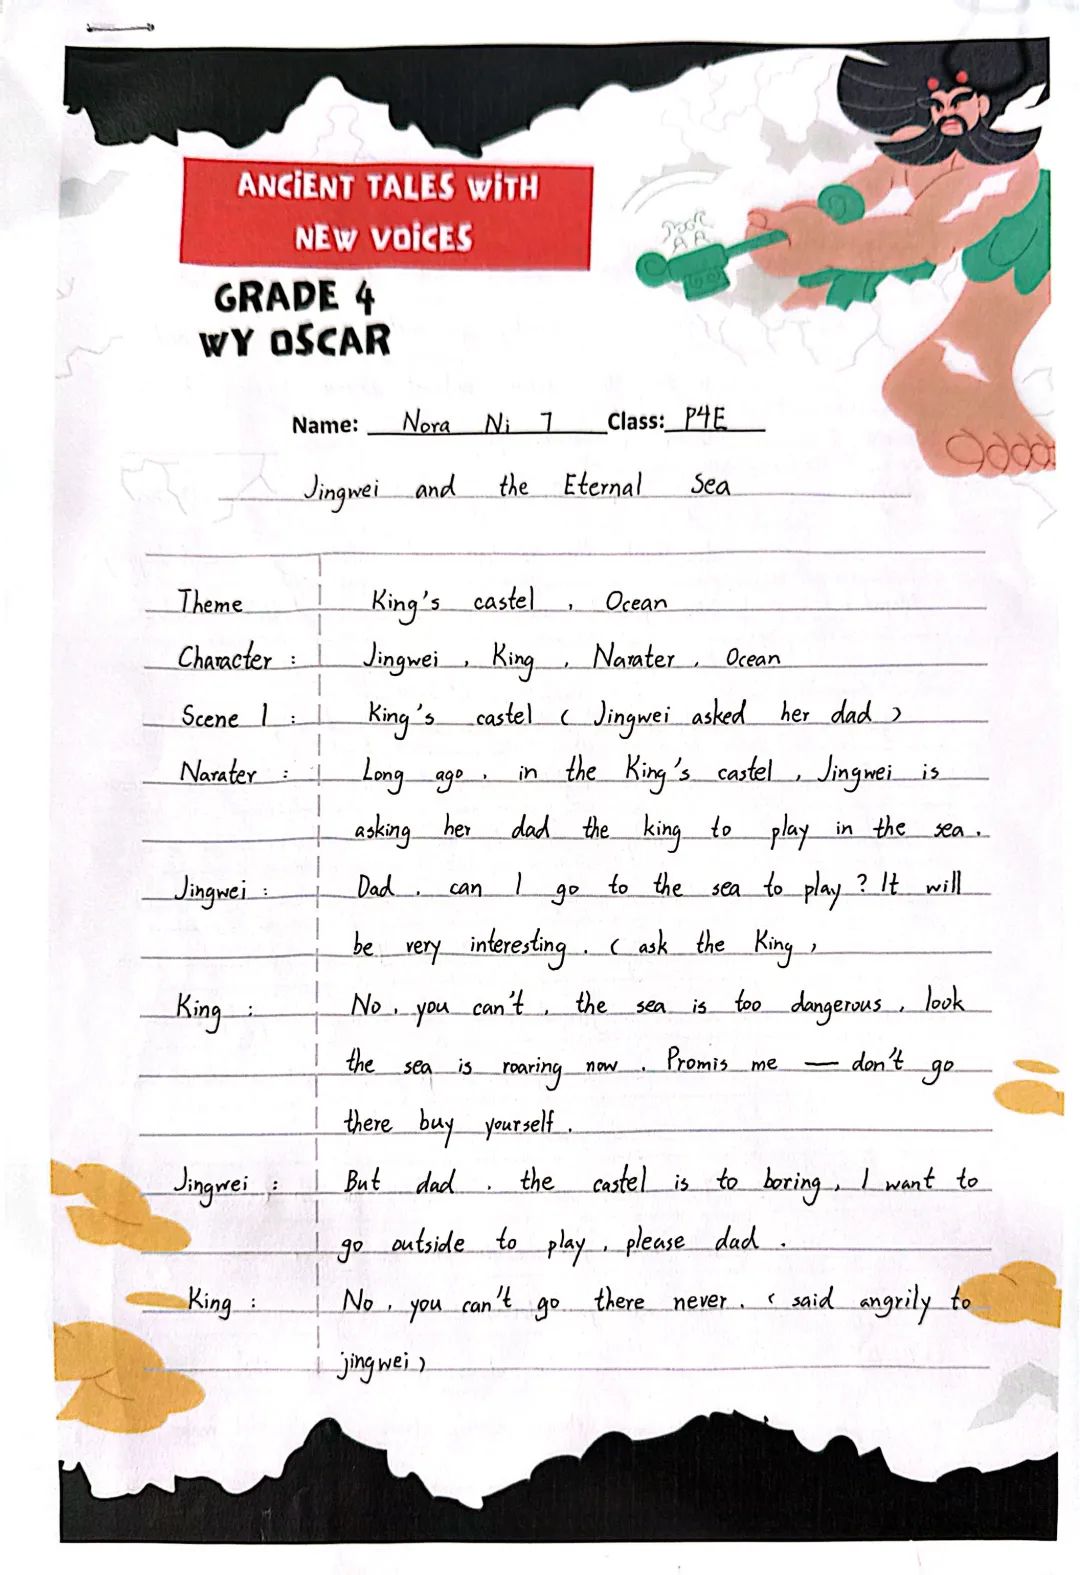 ANCIENT TALES WITH
NEW VOICES
GRADE 4
WY OSCAR
Name: Nora Ni 7 Class: P4E
Jingwei and the Eternal Sea
Theme King's castel , Ocean
Character : Jingwei , King , Narater , Ocean
Scene 1 : King's castel ( Jingwei asked her dad )
Narater : Long ago , in the King's castel , Jingwei is
asking her dad the king to play in the sea .
Jingwei : Dad , can I go to the sea to play ? It will
be very interesting . ( ask the King )
King : No , you can't , the sea is too dangerous , look
the sea is roaring now . Promis me — don't go
there buy yourself .
Jingwei : But dad , the castel is to boring , I want to
go outside to play , please dad .
King : No , you can't go there never . ( said angrily to
jingwei )